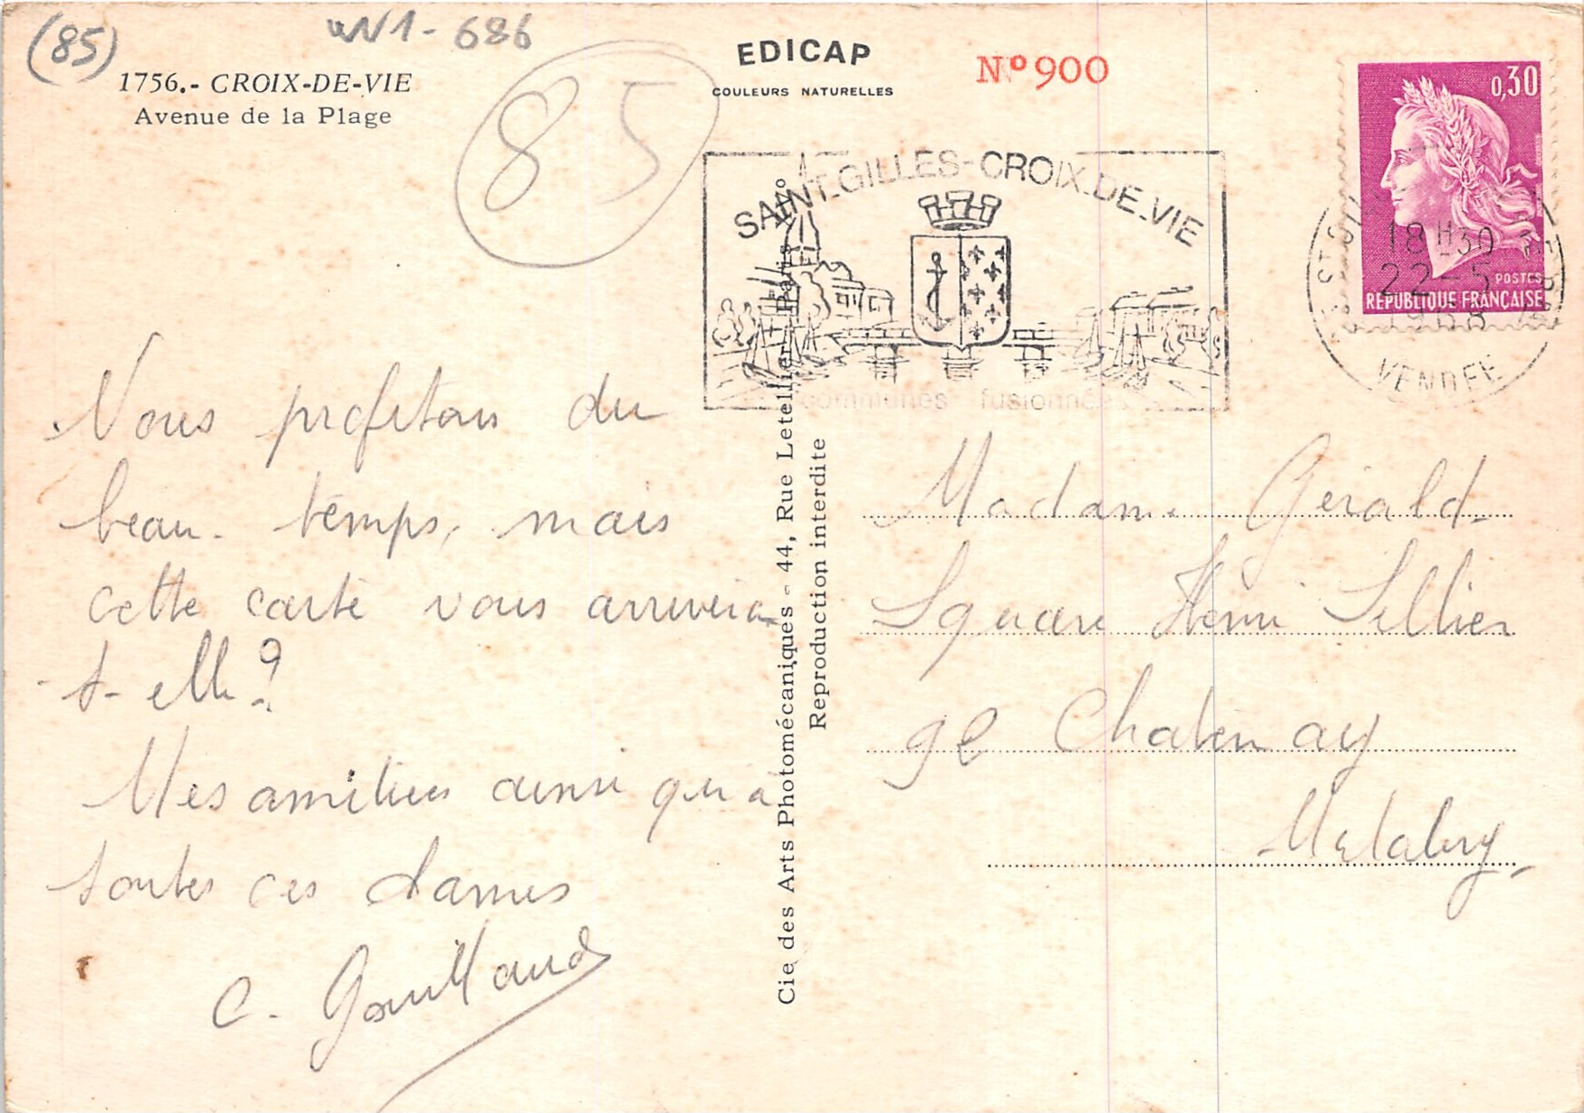 (85)
1756.- CROIX-DE-VIE
Avenue de la Plage
85
EDICAP
COULEURS NATURELLES
Nº 900
0,30
POSTES
REPUBLIQUE FRANÇAISE
SAINT.GILLES-CROIX.DE.VIE
communes fusionnées
18 H 30
22-5
1968
VENDEE
Nous profitons du
beau temps, mais
cette carte vous arrivera
-t-elle ?
Mes amitiés ainsi qu'à
toutes ces dames
C.
Cie des Arts Photomécaniques - 44, Rue Letellier - Paris
Reproduction interdite
Madame Gérald
Square Henri Sellier
92 Chatenay
Malabry